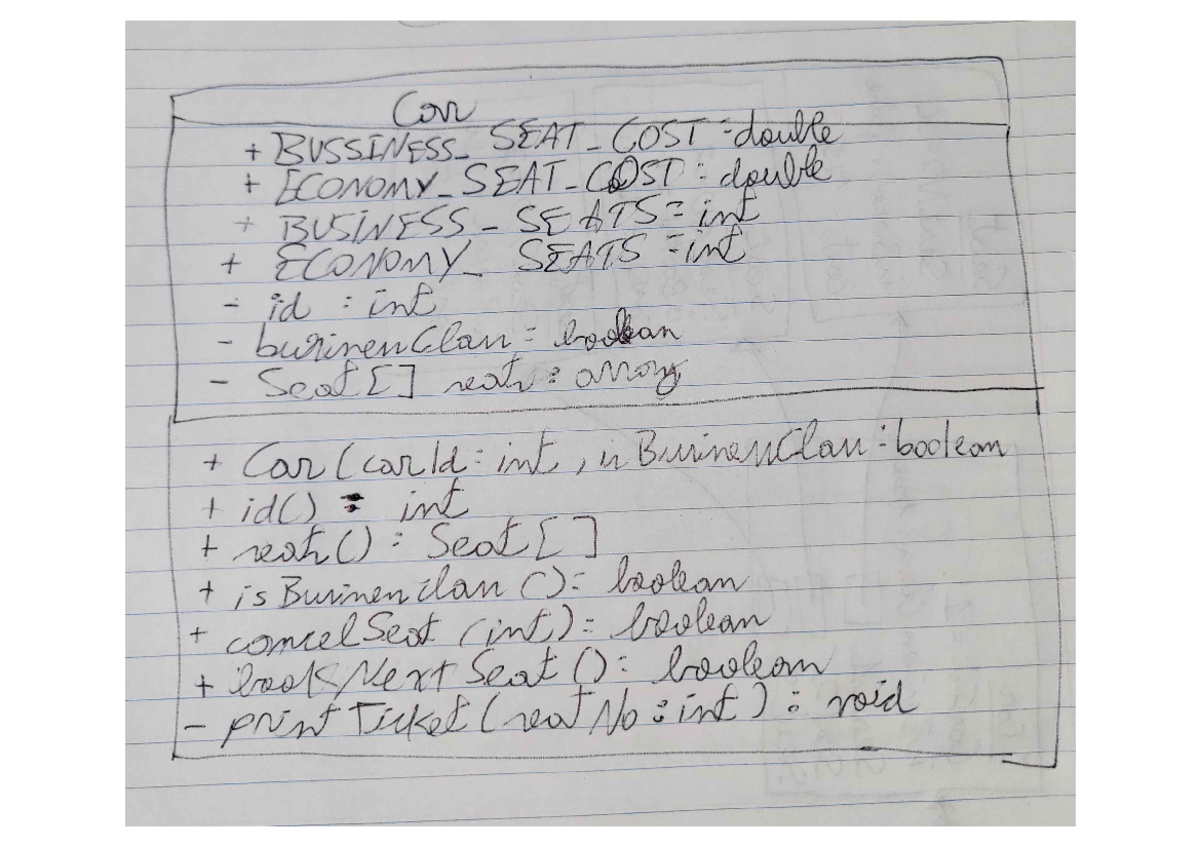 Car
+ BUSSINESS_SEAT_COST : double
+ ECONOMY_SEAT_COST : double
+ BUSINESS_SEATS : int
+ ECONOMY_SEATS : int
- id : int
- businessClass : boolean
- Seat[] seats : array
+ Car(carId : int, isBusinessClass : boolean
+ id() : int
+ seats() : Seat[]
+ isBusinessClass() : boolean
+ cancelSeat(int) : boolean
+ bookNextSeat() : boolean
- printTicket(seatNo : int) : void